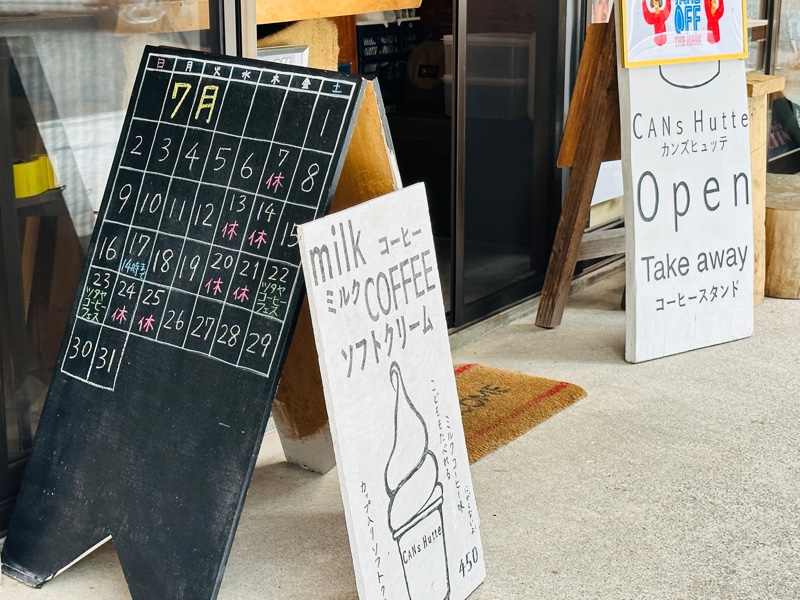 日 月 火 水 木 金 土
7月
1
2 3 4 5 6 7 8
休
9 10 11 12 13 14 15
休 休
16 17 18 19 20 21 22
14時まで 休 休 ツタヤ
コーヒー
フェス
23 24 25 26 27 28 29
ツタヤ
コーヒー
フェス 休 休
30 31
milk コーヒー
ミルク COFFEE
ソフトクリーム
こどももたべれる
ミルクコーヒー味
カップ入りソフトク
CANs Hutte
450
TAKE
OFF
CANs Hutte
カンズヒュッテ
Open
Take away
コーヒースタンド